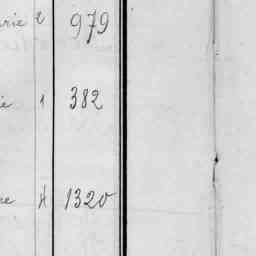 rie 2 979
ie 1 382
re 4 1320